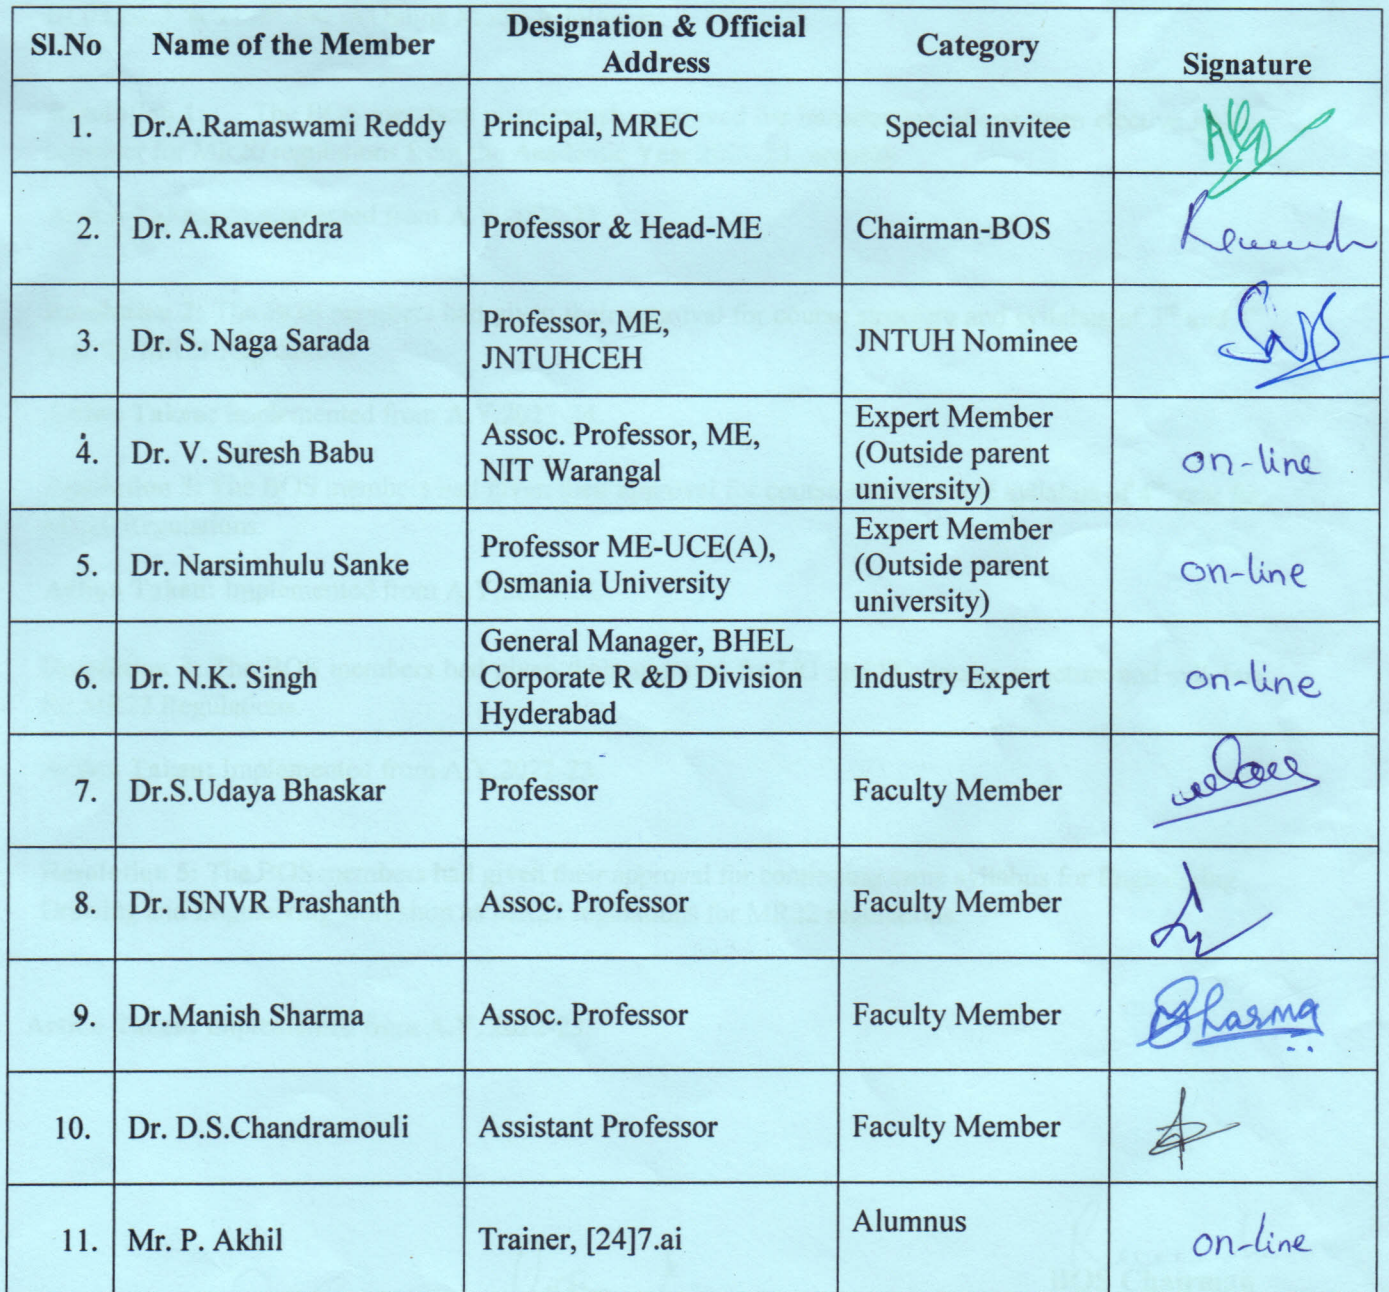 Sl.No Name of the Member Designation & Official Address Category Signature
1. Dr.A.Ramaswami Reddy Principal, MREC Special invitee
2. Dr. A.Raveendra Professor & Head-ME Chairman-BOS
3. Dr. S. Naga Sarada Professor, ME, JNTUHCEH JNTUH Nominee
4. Dr. V. Suresh Babu Assoc. Professor, ME, NIT Warangal Expert Member (Outside parent university) on-line
5. Dr. Narsimhulu Sanke Professor ME-UCE(A), Osmania University Expert Member (Outside parent university) on-line
6. Dr. N.K. Singh General Manager, BHEL Corporate R &D Division Hyderabad Industry Expert on-line
7. Dr.S.Udaya Bhaskar Professor Faculty Member
8. Dr. ISNVR Prashanth Assoc. Professor Faculty Member
9. Dr.Manish Sharma Assoc. Professor Faculty Member Sharma
10. Dr. D.S.Chandramouli Assistant Professor Faculty Member
11. Mr. P. Akhil Trainer, [24]7.ai Alumnus on-line